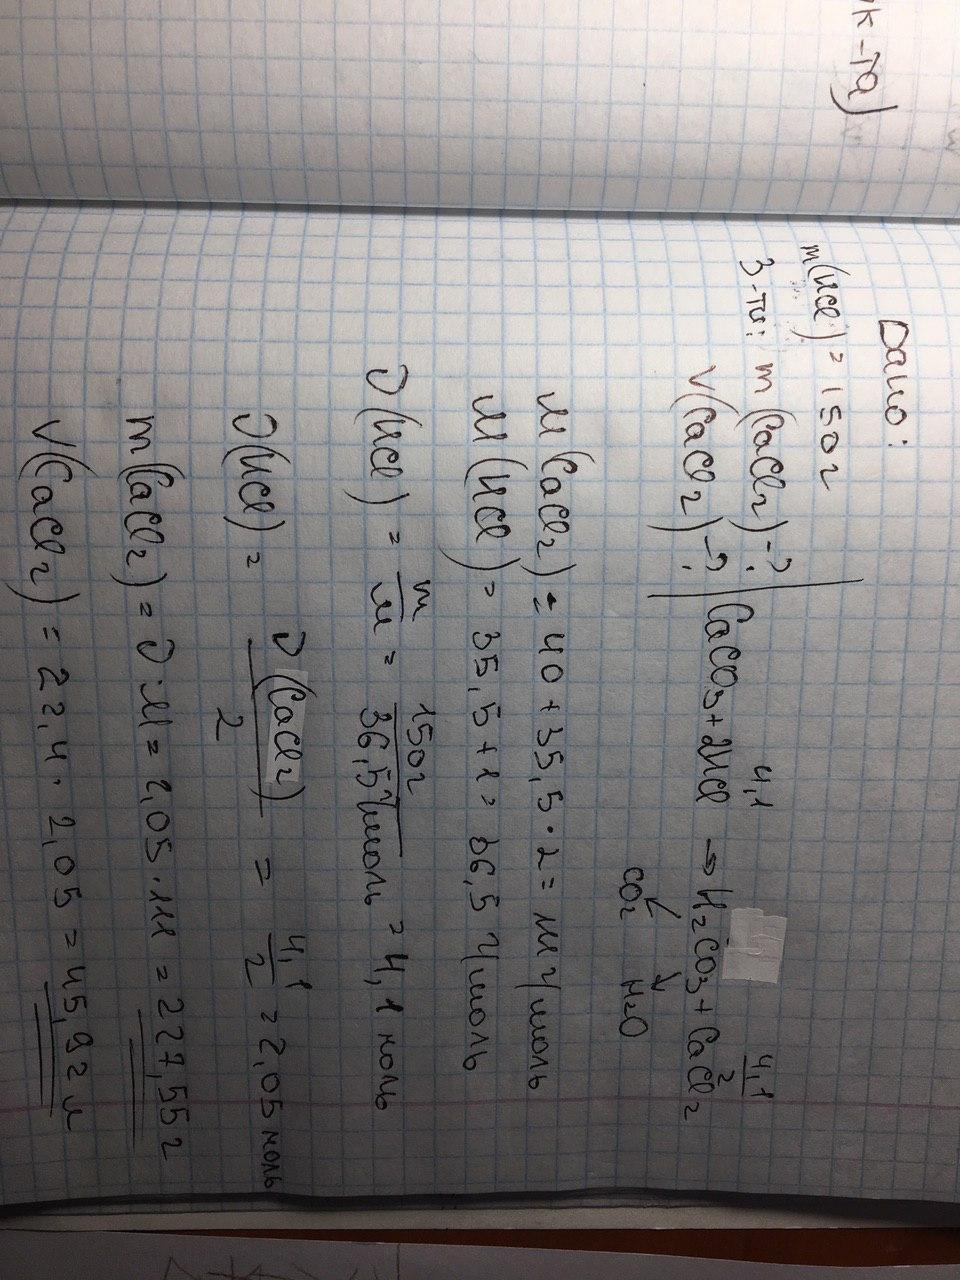 к-та)
Дано:
m(HCl) = 150г
З-ти: m(CaCl₂)-?
V(CaCl₂)-?
4,1 4,1/2
CaCO₃ + 2HCl → H₂CO₃ + CaCl₂
CO₂ H₂O
M(CaCl₂) = 40 + 35,5 · 2 = 111 г/моль
M(HCl) = 35,5 + 1 = 36,5 г/моль
ν(HCl) = m/M = 150г/36,5г/моль = 4,1 моль
ν(HCl) = ν(CaCl₂)/2 = 4,1/2 = 2,05 моль
m(CaCl₂) = ν·M = 2,05 · 111 = 227,55г
V(CaCl₂) = 22,4 · 2,05 = 45,92 л